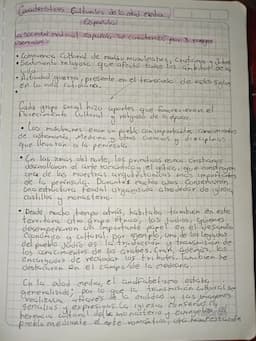 Características Culturales de la edad media
Española
La sociedad medieval española se caracterizó por 3 rasgos
esenciales:
• Convivencia Cultural de moros musulmanes, cristianos y judíos
• Sentimiento religioso que afectó todos los ámbitos de la
vida.
• Actitud guerrera, presente en el transcurso de esta
en la vida cotidiana.
Cada grupo social hizo aportes que favorecieron el
florecimiento Cultural y religioso de la época.
• Los musulmanes eran un pueblo con importantes conocimientos
de astronomía, Medicina y otras Ciencias y disciplinas
que llevaron a la península.
• En las zonas del norte, los primitivos reinos cristianos
desarrollaron el arte románico y el gótico, que constituyen
una de las muestras arquitectónicas más importantes
de la península. Durante mucho conservaron
una estructura feudal organizada alrededor de iglesias,
castillos y monasterios.
• Desde mucho tiempo atrás, habitaba también en este
territorio otro grupo étnico: los judíos, quienes
desempeñaron un importante papel en el desarrollo
económico y cultural, por ejemplo, una de las labores
del pueblo judío es la traducción y transmisión de
los conocimientos de los árabes. Eran, además, los
encargados de recaudar los tributos. También se
destacaron en el campo de la medicina.
En la edad media, el analfabetismo estaba
generalizado; por lo que la transmisión cultural se
realizaba a través de la oralidad y las imágenes
sencillas y expresivas. La iglesia conservó la
herencia cultural de los monasterios y
pueblo mediante el arte románico,